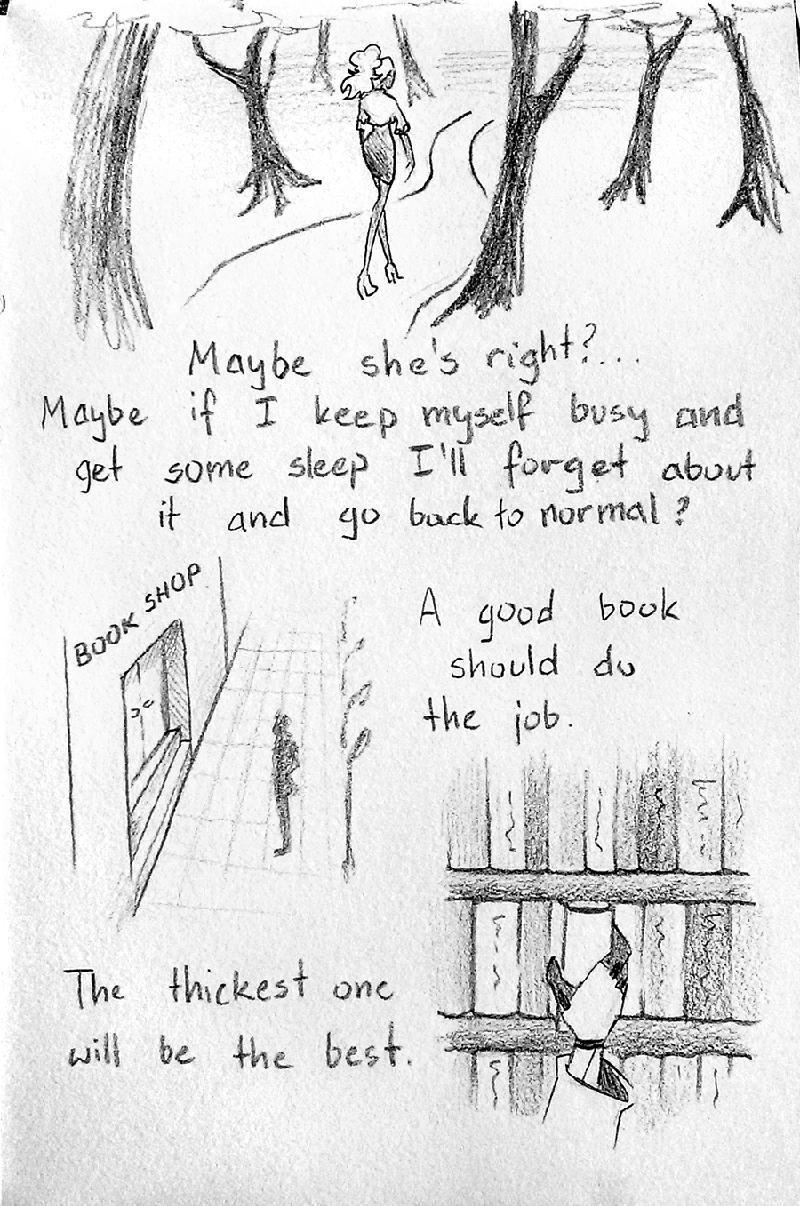 Maybe she's right?...
Maybe if I keep myself busy and
get some sleep I'll forget about
it and go back to normal?
BOOK SHOP
A good book
should do
the job.
The thickest one
will be the best.